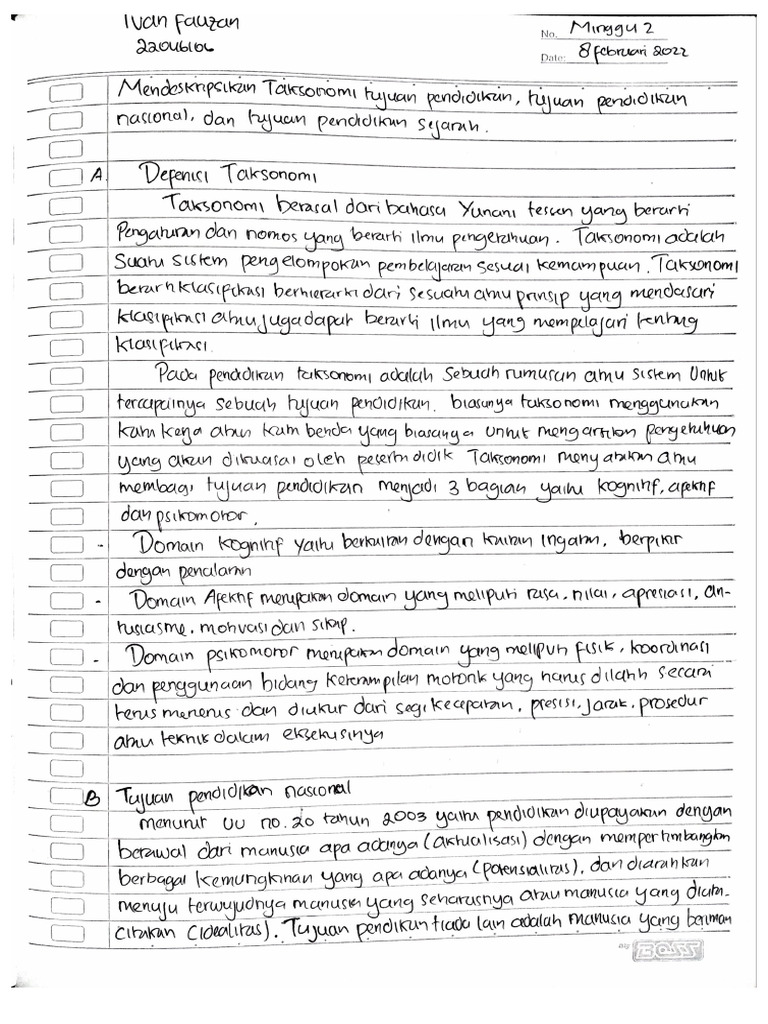 Ivan Fauzan
22046106
No. Minggu 2
Date: 8 februari 2022
Mendeskripsikan Taksonomi tujuan pendidikan, tujuan pendidikan
nasional, dan tujuan pendidikan sejarah.
A. Defenisi Taksonomi
Taksonomi berasal dari bahasa Yunani tessen yang berarti
Pengaturan dan nomos yang berarti ilmu pengetahuan. Taksonomi adalah
Suatu sistem pengelompokan pembelajaran sesuai kemampuan. Taksonomi
berarti klasifikasi berhierarki dari sesuatu atau prinsip yang mendasari
klasifikasi atau juga dapat berarti ilmu yang mempelajari tentang
klasifikasi.
Pada pendidikan taksonomi adalah sebuah rumusan atau sistem Untuk
tercapainya sebuah tujuan pendidikan. biasanya taksonomi menggunakan
kata kerja atau kata benda yang biasanya untuk mengartikan pengetahuan
yang akan dikuasai oleh peserta didik Taksonomi menyatakan atau
membagi tujuan pendidikan menjadi 3 bagian yaitu kognitif, afektif
dan psikomotor.
- Domain kognitif yaitu berkaitan dengan kaitan Ingatan, berpikir
dengan penalaran
- Domain Afektif merupakan domain yang meliputi rasa, nilai, apresiasi, an-
tusiasme, motivasi dan sikap.
- Domain psikomotor merupakan domain yang meliputi fisik, koordinasi
dan penggunaan bidang keterampilan motorik yang harus dilatih secara
terus menerus dan diukur dari segi kecepatan, presisi, jarak, prosedur
atau teknik dalam eksekusinya
B Tujuan pendidikan nasional
menurut UU no. 20 tahun 2003 yaitu pendidikan diupayakan dengan
berawal dari manusia apa adanya (aktualisasi) dengan mempertimbangkan
berbagai kemungkinan yang apa adanya (potensialitas), dan diarahkan
menuju terwujudnya manusia yang seharusnya atau manusia yang dicita-
citakan (idealitas). Tujuan pendikan tiada lain adalah manusia yang beriman
BOSS